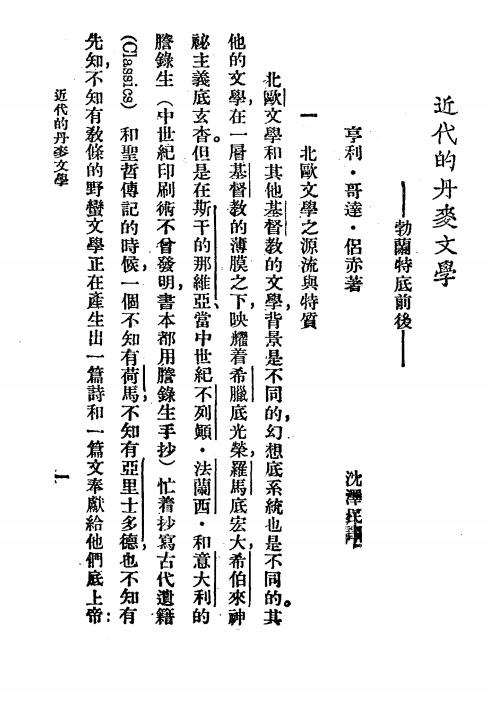 近代的丹麥文學
——勃蘭特底前後——
亨利・哥達・侶赤著
沈澤民譯
一　北歐文學之源流與特質
北歐文學和其他基督教的文學，背景是不同的，幻想底系統也是不同的。其
他的文學，在一層基督教的薄膜之下，映耀着希臘底光榮，羅馬底宏大，希伯來神
祕主義底玄杳。但是在斯干的那維亞、當中世紀不列顛・法蘭西・和意大利的
謄錄生（中世紀印刷術不曾發明，書本都用謄錄生手抄）忙着抄寫古代遺籍
(Classics) 和聖哲傳記的時候，一個不知有荷馬，不知有亞里士多德，也不知有
先知，不知有教條的野蠻文學正在產生出一篇詩和一篇文奉獻給他們底上帝：
近代的丹麥文學
一